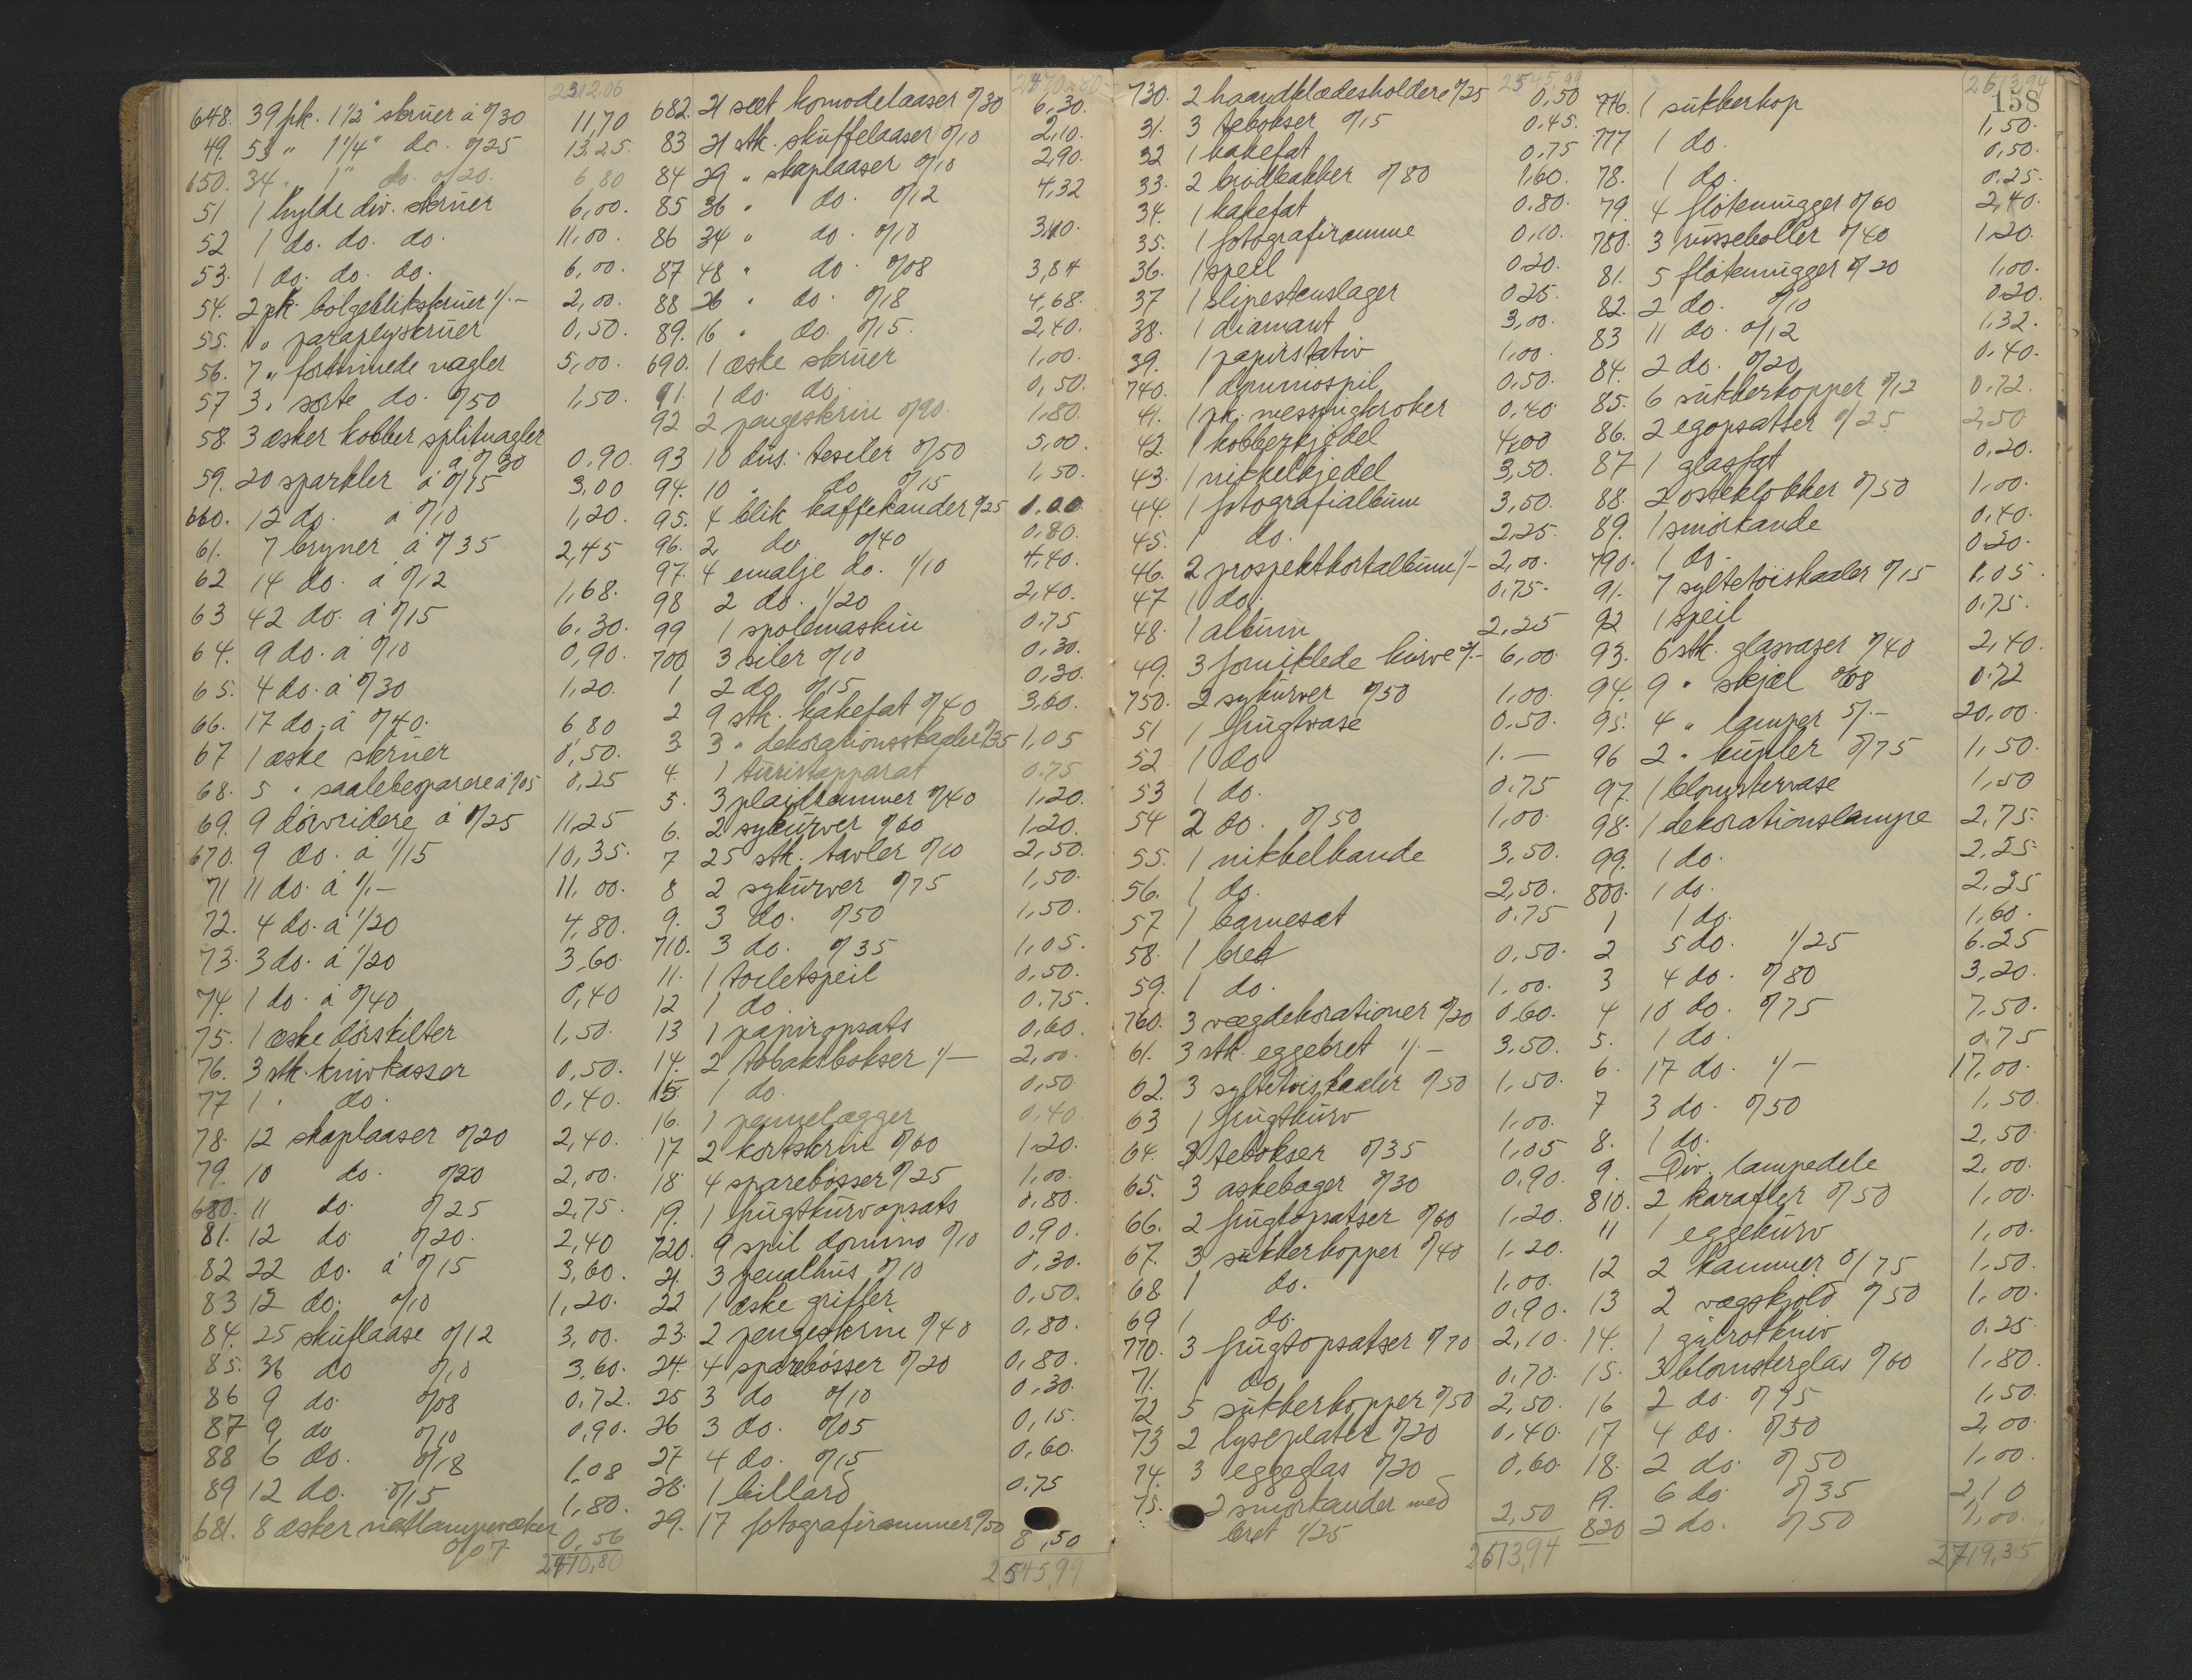 2312.06
648. 39 pk. 1½" skruer à 0/30 11,70
49. 53 " 1¼" do. 0/25 13.25.
650. 34 " 1" do. 0/20. 6,80
51 1 hylde div. skruer 6,00.
52 1 do. do. do. 11,00.
53. 1 do. do. do. 6,00.
54. 2 pk. bølgeblikskruer 1/.- 2,00.
55. 1 " paraplyskruer 0,50.
56. 7 " fortinnede nagler 5,00.
57 3 " sorte do. 0/50 1,50.
58. 3 æsker kobber splitnagler
à 0/30 0,90.
59. 20 sparkler à 0/15 3,00
660. 12 do. à 0/10 1,20.
61. 7 bryner à 0/35 2,45
62 14 do. à 0/12 1,68.
63 42 do. à 0/15 6,30.
64. 9 do. à 0/10 0,90.
65. 4 do. à 0/30 1,20.
66. 17 do. à 0/40. 6 80
67 1 æske skruer 0,50.
68. 5 " saalebesparere à 0/05 0,25
69. 9 dørvridere à 1/25 11,25
670. 9 do. à 1/15 10,35.
71 11 do. à 1/.- 11,00.
72. 4 do. à 1/20 4,80.
73. 3 do. à 1/20 3,60.
74. 1 do. à 0/40 0,40
75. 1 æske dørskilter 1,50.
76. 3 stk. knivkasser 0,50.
77 1 " do. 0,40.
78. 12 skaplaaser 0/20 2,40.
79. 10 do. 0/20 2,00.
680. 11 do. 0/25 2,75.
81. 12 do. 0/20. 2,40
82 22 do. à 0/15 3,60.
83 12 do. 0/10 1,20.
84. 25 skuflaase 0/12 3,00.
85. 36 do 0/10 3,60.
86 9 do. 0/08 0.72.
87 9 do 0/10 0,90.
88 6 do. 0/18 1,08
89 12 do. 0/15 1,80.
681. 8 æsker natlampevæker
0/07 0,56
2470,80
2470,80
682. 21 sæt komodelaaser 0/30 6,30.
83 21 stk. skuffelaaser 0/10 2,10.
84 29 " skaplaaser 0/10 2,90.
85 36 " do. 0/12 4,32
86 34 " do. 0/10 3,40.
87 48 " do. 0/08 3,84
88 26 " do. 0/18 4,68.
89. 16 " do. 0/15. 2,40.
690. 1 æske skruer 1,00.
91. 1 do. do. 0,50.
92 2 pengeskrin 0/90. 1,80.
93 10 dus. tesiler 0/50 5,00.
94. 10 " do 0/15 1,50.
95. 4 blik kaffekander 0/25 1.00
96. 2 do 0/40 0,80.
97. 4 emalje do. 1/10 4,40.
98 2 do. 1/20 2,40.
99 1 spolemaskin 0.75
700 3 siler 0/10 0,30.
1 2 do 0/15 0,30.
2 9 stk. kakefat 0/40 3,60.
3. 3 " dekorationsskagler 0/35 1,05
4. 1 turistapparat 0.75
5. 3 plaidremmer 0/40 1,20.
6. 2 sykurver 0/60 1.20.
7 25 stk. tavler 0/10 2,50.
8 2 sykurver 0/75 1,50.
9. 3 do. 0/50 1,50.
710. 3 do. 0/35 1,05.
11. 1 toiletspeil 0,50.
12 1 do. 0.75.
13 1 papiropsats 0,60.
14. 2 tobaksbokser 1/- 2,00.
15. 1 do. 0,50
16. 1 pengelægger 0,40.
17 2 kortskrin 0/60 1.20.
18 4 sparebøsser 0/25 1,00.
19. 1 frugtkurvopsats 0,80.
720. 9 spil domino 0/10 0,90.
21. 3 penalhus 0/10 0,30.
22 1 æske grifler 0,50.
23. 2 pengeskrin 0/40 0,80.
24. 4 sparebøsser 0/20 0,80.
25 3 do 0/10 0,30.
26 3 do. 0/05 0,15.
27 4 do. 0/15 0,60.
28. 1 billard 0.75
29. 17 fotografirammer 0/50 8,50
2545,99
2545,99
730. 2 haandklædesholdere 0/25 0,50
31. 3 tebokser 0/15 0,45.
32 1 kakefat 0,75
33. 2 brødbakker 0/80 1,60.
34. 1 kakefat 0.80.
35. 1 fotografiramme 0,10.
36. 1 speil 0.20.
37 1 slipestenslager 0.25.
38. 1 diamant 3,00.
39. 1 papirstativ 1,00.
740. 1 dominospil 0,50.
41. 1 pk. messingkroker 0,40
42. 1 kobberkjedel 4,00
43. 1 nikkelkjedel 3,50.
44. 1 fotografialbum 3,50.
45. 1 do. 2,25.
46. 2 prospektkortalbum 1/- 2,00.
47 1 do. 0.75.
48. 1 album 2,25
49. 3 forniklede kurve 2/.- 6,00.
750. 2 sykurver 0/50 1,00.
51 1 frugtvase 0.50.
52 1 do 1.—
53 1 do. 0.75
54 2 do. 0/50 1,00.
55. 1 nikkelkande 3,50.
56. 1 do. 2,50.
57 1 barnesæt 0.75
58. 1 bret 0,50.
59. 1 do. 1,00.
760. 3 vægdekorationer 0/20 0,60.
61. 3 stk. eggebret 1/.- 3,50.
62. 3 syltetøiskaaler 0/50 1,50.
63 1 frugtkurv 1,00.
64. 3 tebokser 0/35 1,05
65. 3 askebæger 0/30 0.90.
66. 2 frugtopsatser 0/60 1.20.
67. 3 sukkerkopper 0/40 1.20.
68 1 do. 1,00.
69 1 do. 0.90.
770. 3 frugtopsatser 0/70 2,10.
71. 1 do. 0.70.
72 5 sukkerkopper 0/50 2,50.
73 2 lyseplater 0/20 0,40.
74. 3 eggeglas 0/20 0,60.
75. 2 smørkander med
bret 1/25 2,50
2613,94
2613,94
158
776. 1 sukkerkop 1,50.
777 1 do. 0,50.
78. 1 do. 0.25.
79. 4 fløtemugger 0/60 2,40.
780. 3 punsseboller 0/40 1.20.
81. 5 fløtemugger 0/20 1,00.
82. 2 do. 0/10 0.20.
83 11 do. 0/12 1,32.
84. 2 do. 0/20 0.40.
85. 6 sukkerkopper 0/12 0.72.
86. 2 egopsatser 1/25 2,50
87 1 glasfat 0.20.
88. 2 osteklokker 0/50 1,00.
89. 1 smørkande 0,40.
790. 1 do. 0.20.
91. 7 syltetøiskaaler 0/15 1,05.
92 1 speil 0.75.
93. 6 stk. glasvaser 0/40 2,40.
94. 9 " skjæl 0/08 0.72
95. 4 " lamper 5/.- 20,00.
96 2 " kupler 0/75 1,50.
97. 1 blomstervase 1,50
98. 1 dekorationslampe 2,75.
99. 1 do. 2,25
800. 1 do. 2,25
1 1 do. 1,60.
2 5 do. 1/25 6.25
3 4 do. 0/80 3,20.
4 10 do. 0/75 7,50.
5. 1 do. 0.75
6. 17 do. 1/- 17,00.
7 3 do. 0/50 1,50.
8. 1 do. 2,50.
9. Div. lampedele 2,00.
810. 2 karafler 0/50 1,00.
11 1 eggekurv 1,00.
12 2 kammer 0/75 1,50.
13 2 vægskjold 0/50 1,00.
14. 1 gulrotkniv 0.25.
15. 3 blomsterglas 0/60 1,80.
16 2 do 0/75 1,50.
17 4 do. 0/50 2,00.
18. 2 do. 0/50 1,00.
19. 6 do. 0/35 2,10
820 2 do. 0/50 1,00.
2719,35